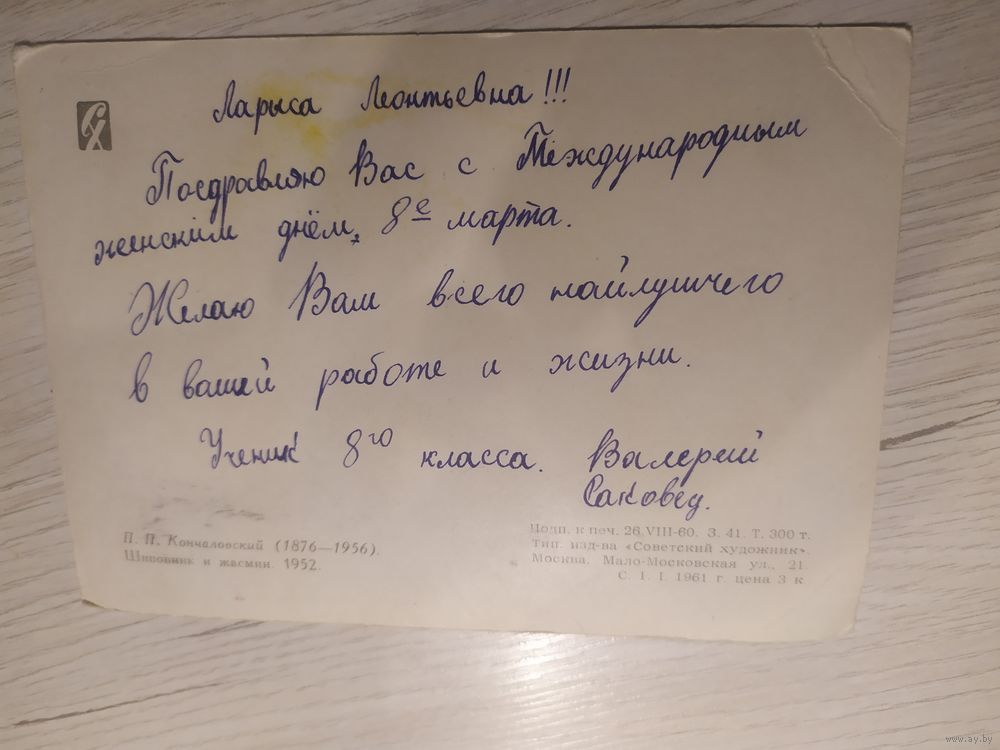 Ларыса Леонтьевна!!!
Поздравляю Вас с Международным
женским днём, 8е марта.
Желаю Вам всего найлутчего
в вашей работе и жизни.
Ученик 8го класса. Валерий
Саковец.
П. П. Кончаловский (1876—1956).
Шиповник и жасмин. 1952.
Подп. к печ. 26.VIII-60. З. 41. Т. 300 т.
Тип. изд-ва «Советский художник».
Москва, Мало-Московская ул., 21
С. I. I. 1961 г. цена 3 к
www.ay.by